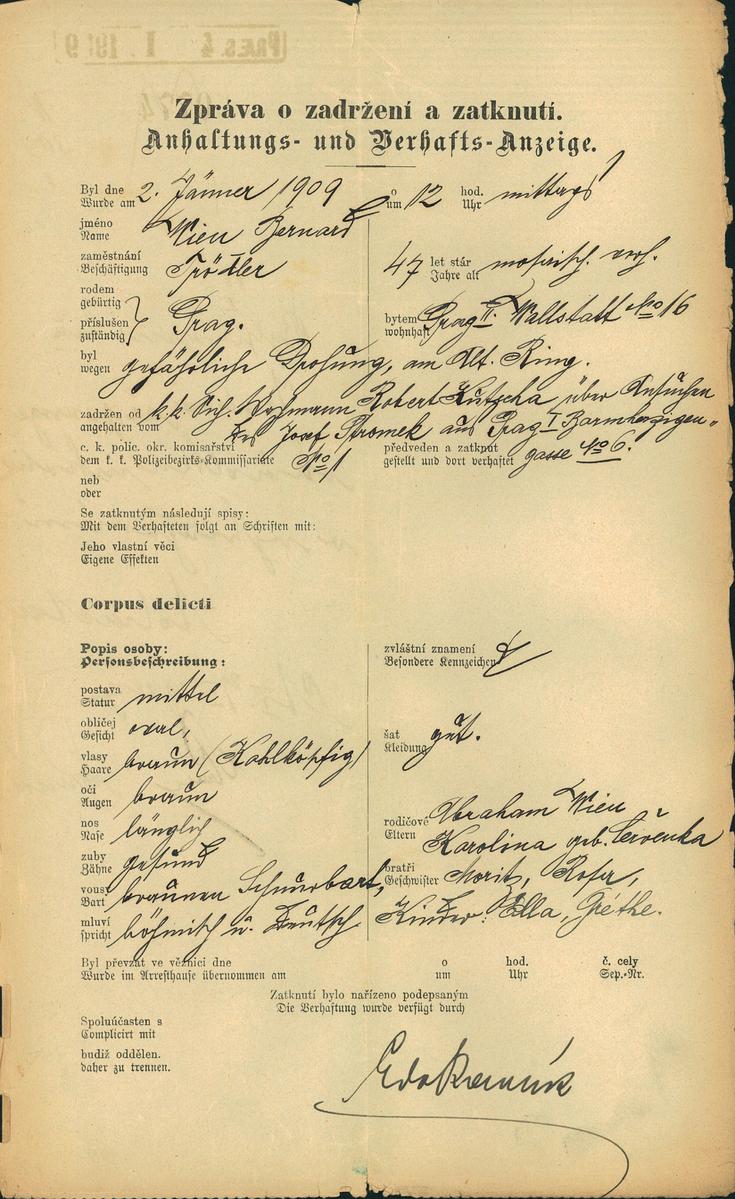 Zpráva o zadržení a zatknutí.
Anhaltungs- und Verhafts-Anzeige.
Byl dne o hod.
Wurde am 2. Jänner 1909 um 12 Uhr mittags
jméno
Name Wien Bernard
zaměstnání let stár
Beschäftigung Trödler 47 Jahre alt mosaisch. verh.
rodem
gebürtig
příslušen bytem
zuständig Prag. wohnhaft Prag II. Wallstatt No 16
byl
wegen gefährliche Drohung, am Alt. Ring.
zadržen od k.k. Sich. Wachmann Robert Kutscha über Ansuchen
angehalten vom des Josef Stromek aus Prag I Barmherzigen-
c. k. polic. okr. komisařství předveden a zatknut
dem k. k. Polizeibezirks-Kommissariate No 1 gestellt und dort verhaftet gasse No 6.
neb
oder
Se zatknutým následují spisy:
Mit dem Verhafteten folgt an Schriften mit:
Jeho vlastní věci
Eigene Effekten
Corpus delicti
Popis osoby: zvláštní znamení
Personsbeschreibung: Besondere Kennzeichen
postava
Statur mittel
obličej šat
Gesicht oval, Kleidung gut.
vlasy
Haare braun (Kahlköpfig)
oči
Augen braun
nos rodičové Abraham Wien
Nase länglich Eltern Karolina geb. Červenka
zuby bratři
Zähne gesund Geschwister Moritz, Rosa,
vous
Bart braunen Schnurbart,
mluví
spricht böhmisch u. Deutsch. Kinder: Ella, Grethe.
Byl převzat ve věznici dne o hod. č. cely
Wurde im Arresthause übernommen am um Uhr Sep.-Nr.
Zatknutí bylo nařízeno podepsaným
Die Verhaftung wurde verfügt durch
Spoluúčasten s
Complicirt mit
budiž oddělen.
daher zu trennen.